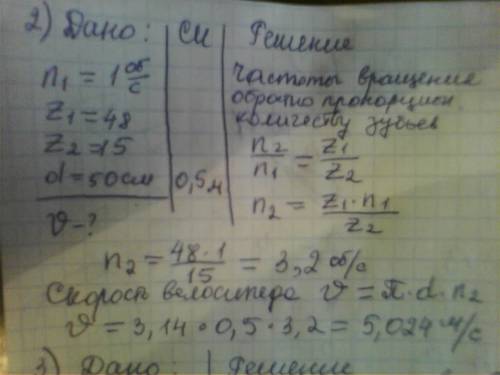 2) Дано: | СИ | Решение
n₁ = 1 об/с
Z₁ = 48
Z₂ = 15
d = 50см | 0,5м
v - ?
Частоты вращения
обратно пропорцион.
количеству зубьев
n₂/n₁ = Z₁/Z₂
n₂ = Z₁·n₁/Z₂
n₂ = 48·1/15 = 3,2 об/с
Скорость велосипеда v = π·d·n₂
v = 3,14·0,5·3,2 = 5,024 м/с
3) Дано: | Решение